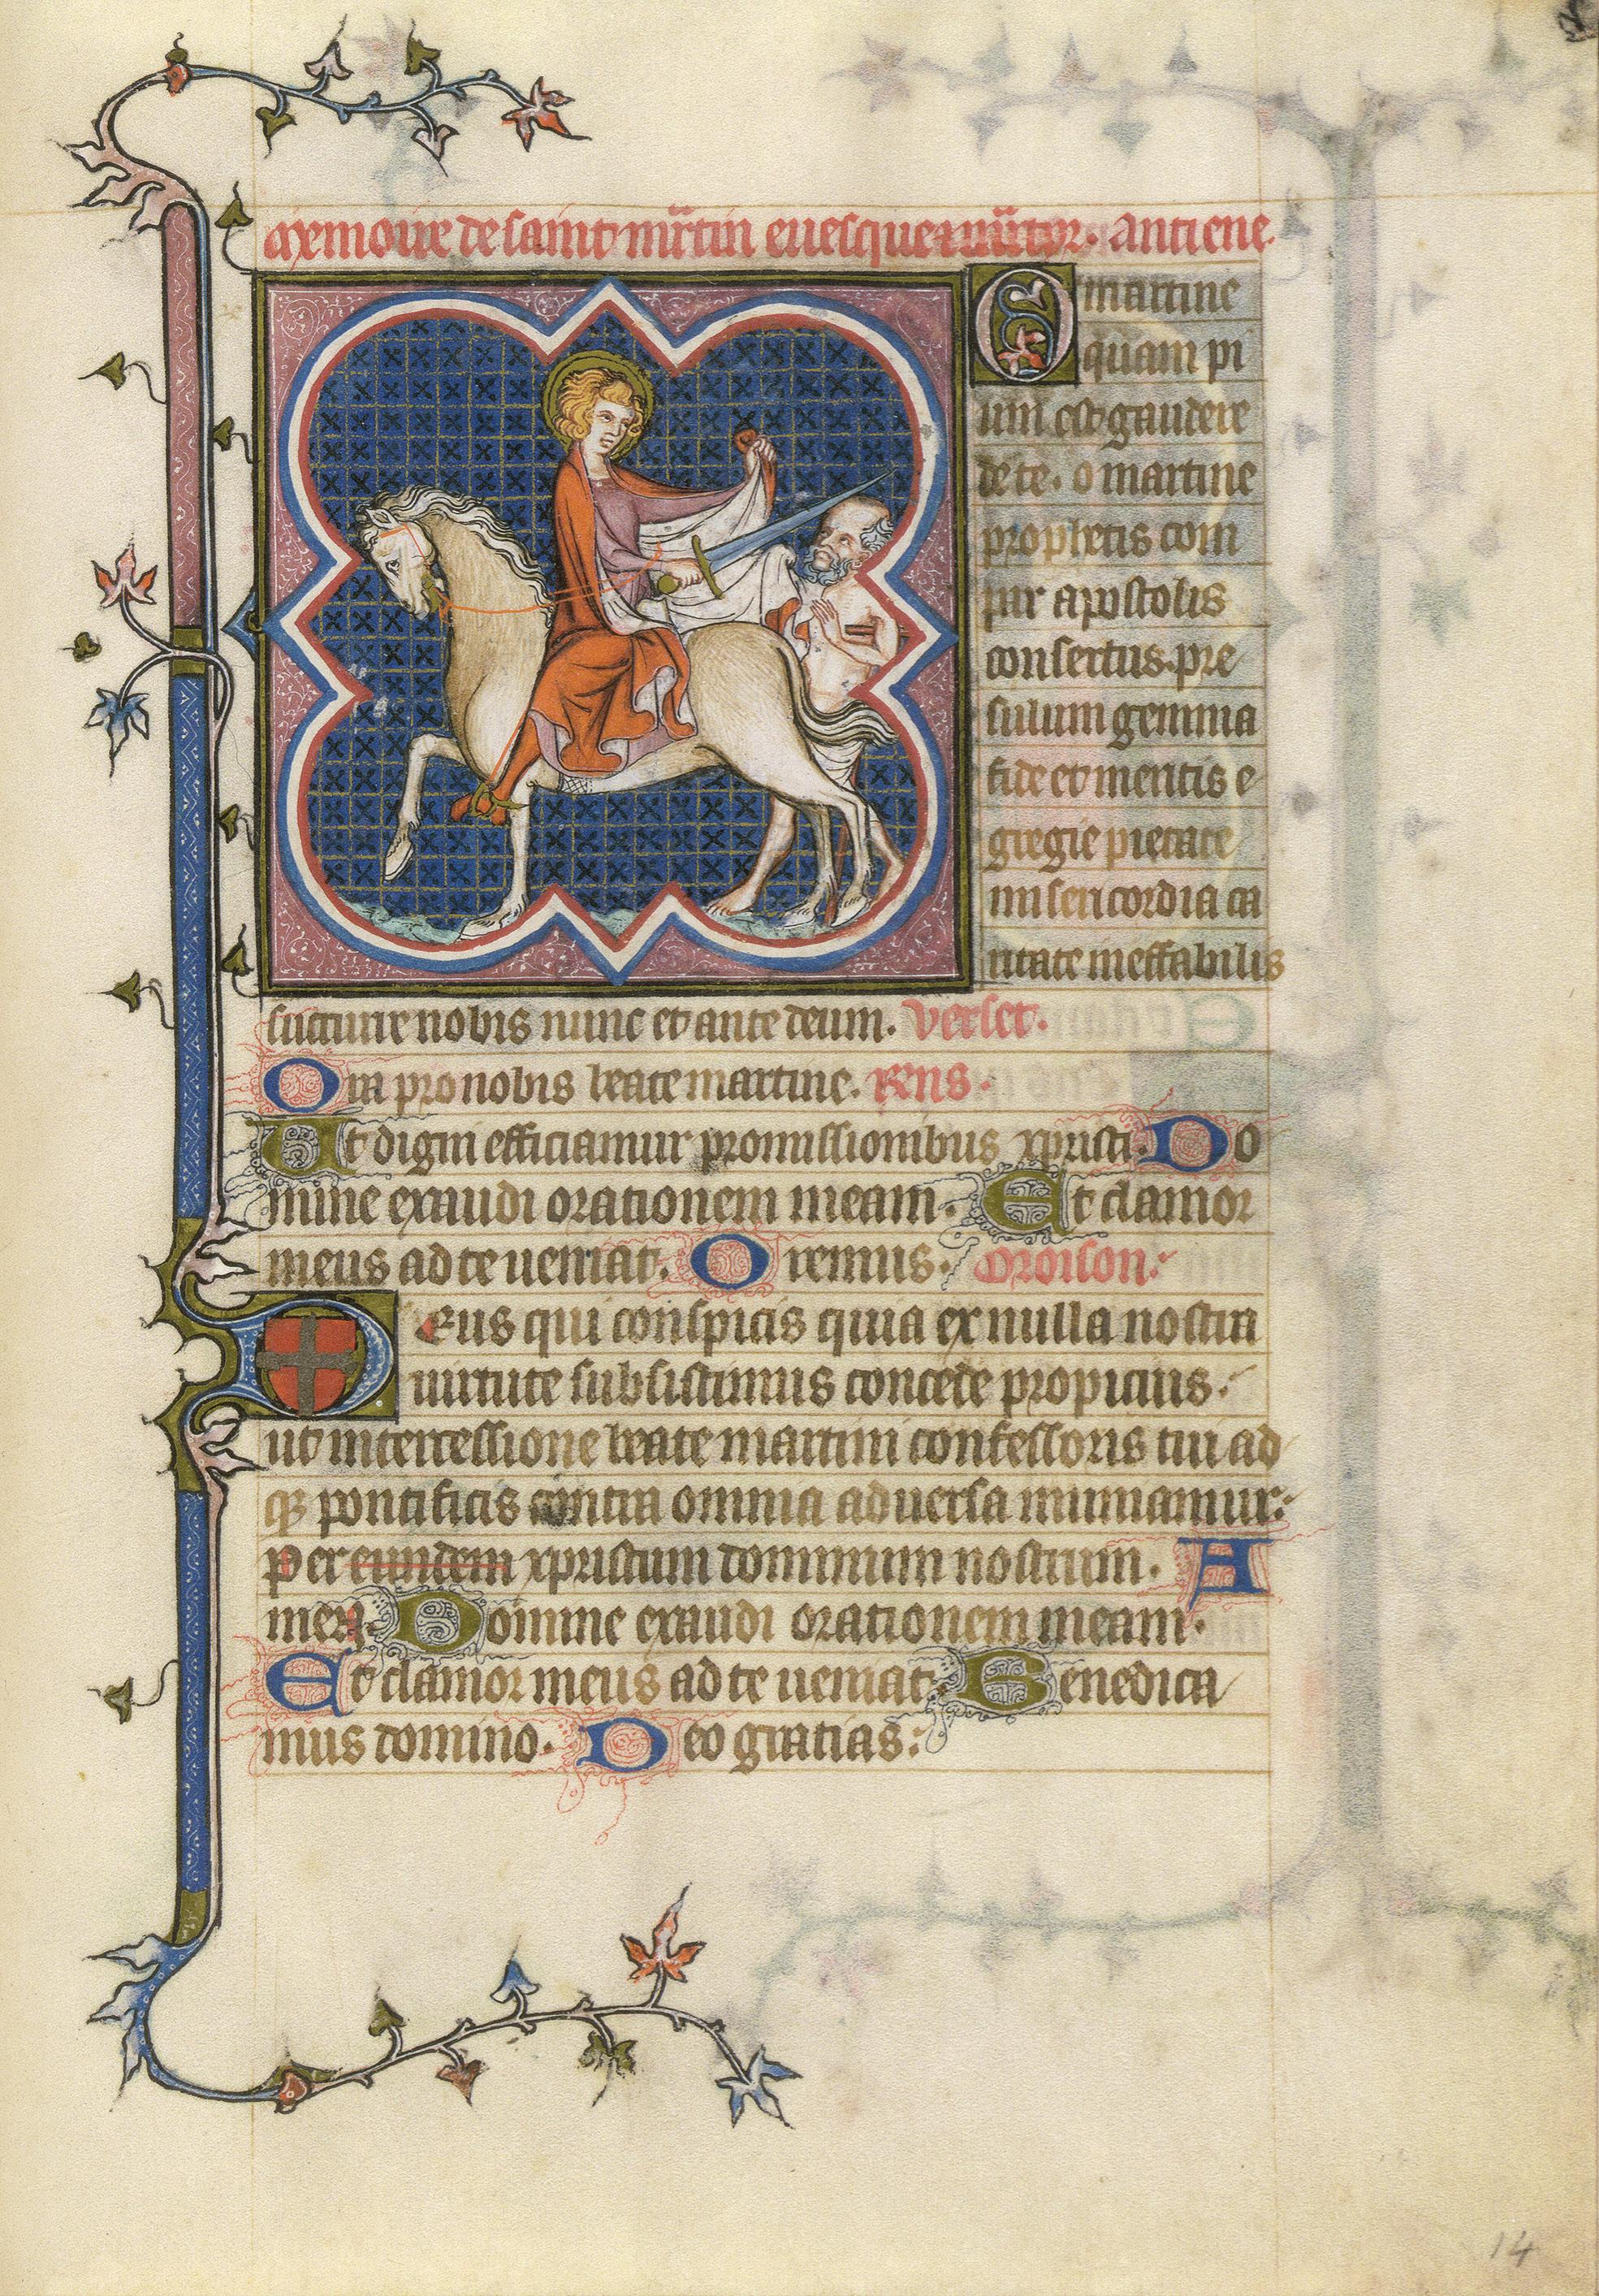 Memoire de saint martin evesque Antiene.
O martine
quam pi
um est gaudere
de te. o martine
prophetis com
par apostolis
consertus. pre
sulum gemma
fide et meritis e
gregie pietate
misericordia ca
ritate ineffabilis
succurre nobis nunc et ante deum. Verset.
Ora pro nobis beate martine. Rens.
Ut digni efficiamur promissionibus xpristi. Do
mine exaudi orationem meam. Et clamor
meus ad te veniat. Oremus. Oroison.
Deus qui conspicis quia ex nulla nostra
uirtute subsistimus concede propicius.
ut intercessione beate martini confessoris tui ad
qz pontificis contra omnia aduersa muniamur.
Per eundem xpristum dominum nostrum. A
men. Domine exaudi orationem meam.
Et clamor meus ad te ueniat. Benedica
mus domino. Deo gratias.
14